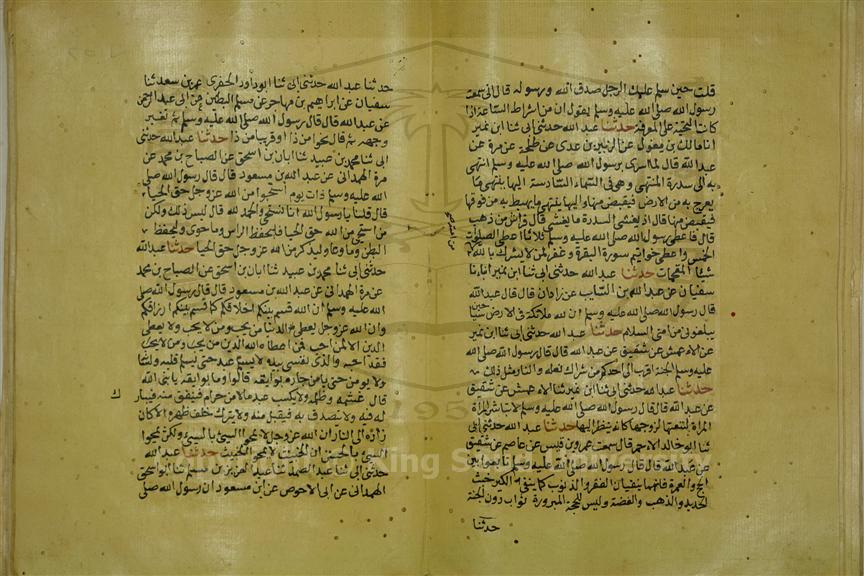 قلت حين سلم عليك الرجل صدق الله ورسوله قال اني سمعت
رسول الله صلى الله عليه وسلم يقول ان من اشراط الساعة اذا
كانت التحية على المعرفة حدثنا عبد الله حدثني ابي ثنا ابن نمير
انا مالك بن مغول عن الزبير بن عدي عن طلحة عن مرة عن
عبد الله قال لما اسري برسول الله صلى الله عليه وسلم انتهى
به الى سدرة المنتهى وهي في السماء السادسة اليها ينتهي ما
يعرج به من الارض فيقبض منها واليها ينتهي ما يهبط به من فوقها
فيقبض منها قال اذ يغشى السدرة ما يغشى قال فراش من ذهب
قال فاعطي رسول الله صلى الله عليه وسلم ثلاثا اعطي الصلوات
الخمس واعطي خواتيم سورة البقرة وغفر لمن لا يشرك بالله
شيئا المقحمات حدثنا عبد الله حدثني ابي ثنا ابن نمير انبانا
سفيان عن عبد الله بن السايب عن زاذان قال قال عبد الله
قال رسول الله صلى الله عليه وسلم ان لله ملائكة في الارض سياحين
يبلغوني من امتي السلام حدثنا عبد الله حدثني ابي ثنا ابن نمير
عن الاعمش عن شقيق عن عبد الله قال قال رسول الله صلى الله
عليه وسلم الجنة اقرب الى احدكم من شراك نعله والنار مثل ذلك
حدثنا عبد الله حدثني ابي ثنا ابن نمير ثنا الاعمش عن شقيق
عن عبد الله قال قال رسول الله صلى الله عليه وسلم لا تباشر المراة
المراة لتنعتها لزوجها كانه ينظر اليها حدثنا عبد الله حدثني ابي
ثنا ابو خالد الاحمر قال سمعت عمرو بن قيس عن عاصم عن شقيق
عن عبد الله قال قال رسول الله صلى الله عليه وسلم تابعوا بين
الحج والعمرة فانهما ينفيان الفقر والذنوب كما ينفي الكير خبث
الحديد والذهب والفضة وليس للحجة المبرورة ثواب دون الجنة
حدثنا
حدثنا عبد الله حدثني ابي ثنا ابو داود الحفري عمر بن سعد ثنا
سفيان عن ابراهيم بن مهاجر عن مسلم البطين عن ابي عبد الرحمن
عن عبد الله قال قال رسول الله صلى الله عليه وسلم ثم تغير
وجهه ثم قال نحوا من ذا او قريبا من ذا حدثنا عبد الله حدثني
ابي ثنا محمد بن عبيد ثنا ابان بن اسحق عن الصباح بن محمد عن
مرة الهمداني عن عبد الله بن مسعود قال قال رسول الله صلى
الله عليه وسلم ذات يوم استحيوا من الله عز وجل حق الحياء
قال قلنا يا رسول الله انا نستحي والحمد لله قال ليس ذلك ولكن
من استحي من الله حق الحيا فليحفظ الراس وما حوى وليحفظ
البطن وما وعا وليذكر من الله عز وجل حق الحيا حدثنا عبد الله
حدثني ابي ثنا محمد بن عبيد ثنا ابان بن اسحق عن الصباح بن محمد
عن مرة الهمداني عن عبد الله بن مسعود قال قال رسول الله صلى
الله عليه وسلم ان الله قسم بينكم اخلاقكم كما قسم بينكم ارزاقكم
وان الله عز وجل يعطي الدنيا من يحب ومن لا يحب ولا يعطي
الدين الا لمن احب فمن اعطاه الله الدين
فقد احبه والذي نفسي بيده لا يسلم عبد حتى يسلم قلبه ولسانه
ولا يومن حتى يامن جاره بوايقه قالوا وما بوايقه يا نبي الله
قال غشمه وظلمه ولا يكسب عبد مالا من حرام فينفق منه فيبارك
له فيه ولا يتصدق به فيقبل منه ولا يترك خلف ظهره الا كان
زاده الى النار ان الله عز وجل لا يمحوا السيئ بالسيئ ولكن يمحوا
السيئ بالحسن ان الخبيث لا يمحو الخبيث حدثنا عبد الله
حدثني ابي ثنا عبد الصمد ثنا عبد العزيز بن مسلم ثنا ابو اسحق
الهمداني عن ابي الاحوص عن ابن مسعود ان رسول الله صلى